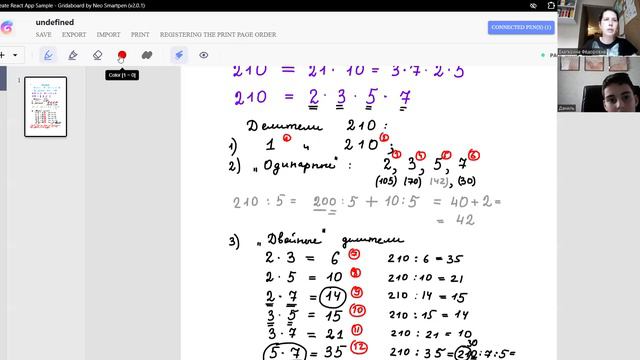 create React App Sample - Gridaboard by Neo Smartpen (v2.0.1)
undefined
SAVE EXPORT IMPORT PRINT REGISTERING THE PRINT PAGE ORDER
CONNECTED PEN(S) (1)
Color [1 ~ 0]
1
210 = 21 · 10 = 3 · 7 · 2 · 5
210 = 2 · 3 · 5 · 7
Делители 210 :
1) 1 и 210 ;
2) „Одинарные" : 2, 3, 5, 7
(105) (70) (42), (30)
210 : 5 = 200 : 5 + 10 : 5 = 40 + 2 =
= 42
3) „Двойные" делители
2 · 3 = 6 210 : 6 = 35
2 · 5 = 10 210 : 10 = 21
2 · 7 = 14 210 : 14 = 15
3 · 5 = 15 10 210 : 15 = 14
3 · 7 = 21 11 210 : 21 = 10
5 · 7 = 35 12 210 : 35 = 210 : 7 : 5 =
30
Даниль